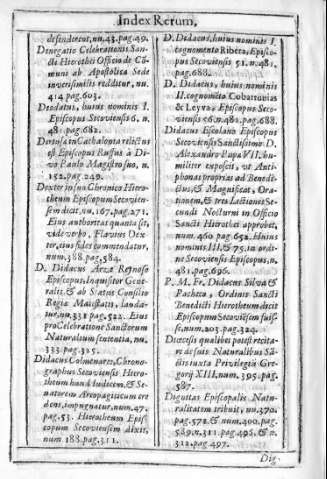 Index Rerum.
defenderent, nu. 43. pag. 49.
Denegatio Celebrationis San-
cti Hierothei Officio de Cō-
muni ab Apostolica Sede
inversimilis redditur, nu.
414. pag. 603.
Deodatus, huius nominis I.
Episcopus Secoviensis 6. n.
481. pag. 682.
Dertosa in Cathalonia relictus
est Episcopus Ruffus à Di-
vo Paulo Magistro suo, n.
152. pag. 249.
Dexter in suo Chronico Hiero-
theum Episcopum Secovien-
sem dicit, nu. 167. pag. 271.
Eius authoritas quanta sit,
vide verbo, Flavius Dex-
ter, eius fides commendatur,
num. 388. pag. 584.
D. Didacus Arze Reynoso
Episcopus, Inquisitor Gene-
ralis, & ab Status Consilio
Regiæ Maiestatis, lauda-
tur, nu. 332. pag. 522. Eius
pro Celebratione Sanctorum
Naturalium sententia, nu.
333. pag. 525.
Didacus Colmenares, Chrono-
graphus Secoviensis Hiero-
theum haud Iudicem, & Se-
natorem Areopagiticum cre
dens, impugnatur, num. 47.
pag. 53. Hierotheum Epis-
copum Secoviensem dixit,
num. 188. pag. 311.
D. Didacus, huius nominis I.
cognomento Ribera, Episco-
pus Secoviensis 51. n. 481.
pag. 688.
D. Didacus, huius nominis
II. cognomēto Cobarrubias
& Leyva, Episcopus Seco-
viensis 56. n. 481. pag. 688.
Didacus Escolano Episcopus
Secoviensis Sanctissimo D.
Alexandro Papa VII. hu-
militer exposuit, vt Anti-
phonas proprias ad Benedic-
tus, & Magnificat, Ora-
tionem, & tres Lectiones Se-
cundi Nocturni in Officio
Sancti Hierothei approbet,
num. 460. pag. 652. Huius
nominis III. & 75. in ordi-
ne Secoviensis Episcopus, n.
481. pag. 696.
P. M. Fr. Didacus Silva &
Pacheco, Ordinis Sancti
Benedicti Hierotheum dicit
Episcopum Secoviēsem fuis-
se, num. 203. pag. 324.
Diœcesis qualibet potest recita-
re de suis Naturalibus Sā-
ctis iuxta Privilegia Gre-
gorij XIII. num. 395. pag.
587.
Dignitas Episcopalis Natu-
ralitatem tribuit, nu. 370.
pag. 572. & num. 400. pag.
589. n. 311. pag. 496. & n.
312. pag. 497.
Dig-